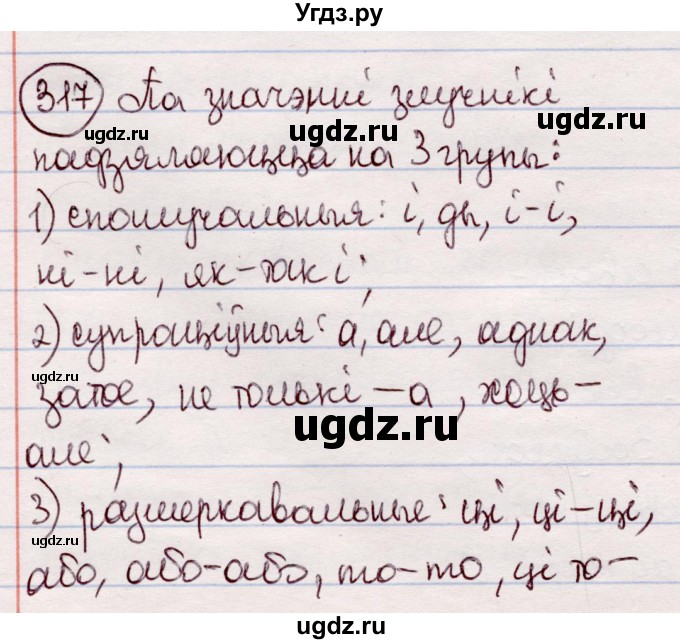 Угдз.ру
317 Па значэнні злучнікі
ugdz.ru
ugdz.ru
падзяляюцца на 3 групы:
1) спалучальныя: і, ды, і-і,
ні-ні, як-так і;
ugdz.ru
2) супраціўныя: а, але, аднак,
ugdz.ru
затое, не толькі - а, хоць-
ugdz.ru
але;
ugdz.ru
3) размеркавальные: ці, ці-ці,
ugdz.ru
або, або-або, то-то, ці то-
ugdz.ru